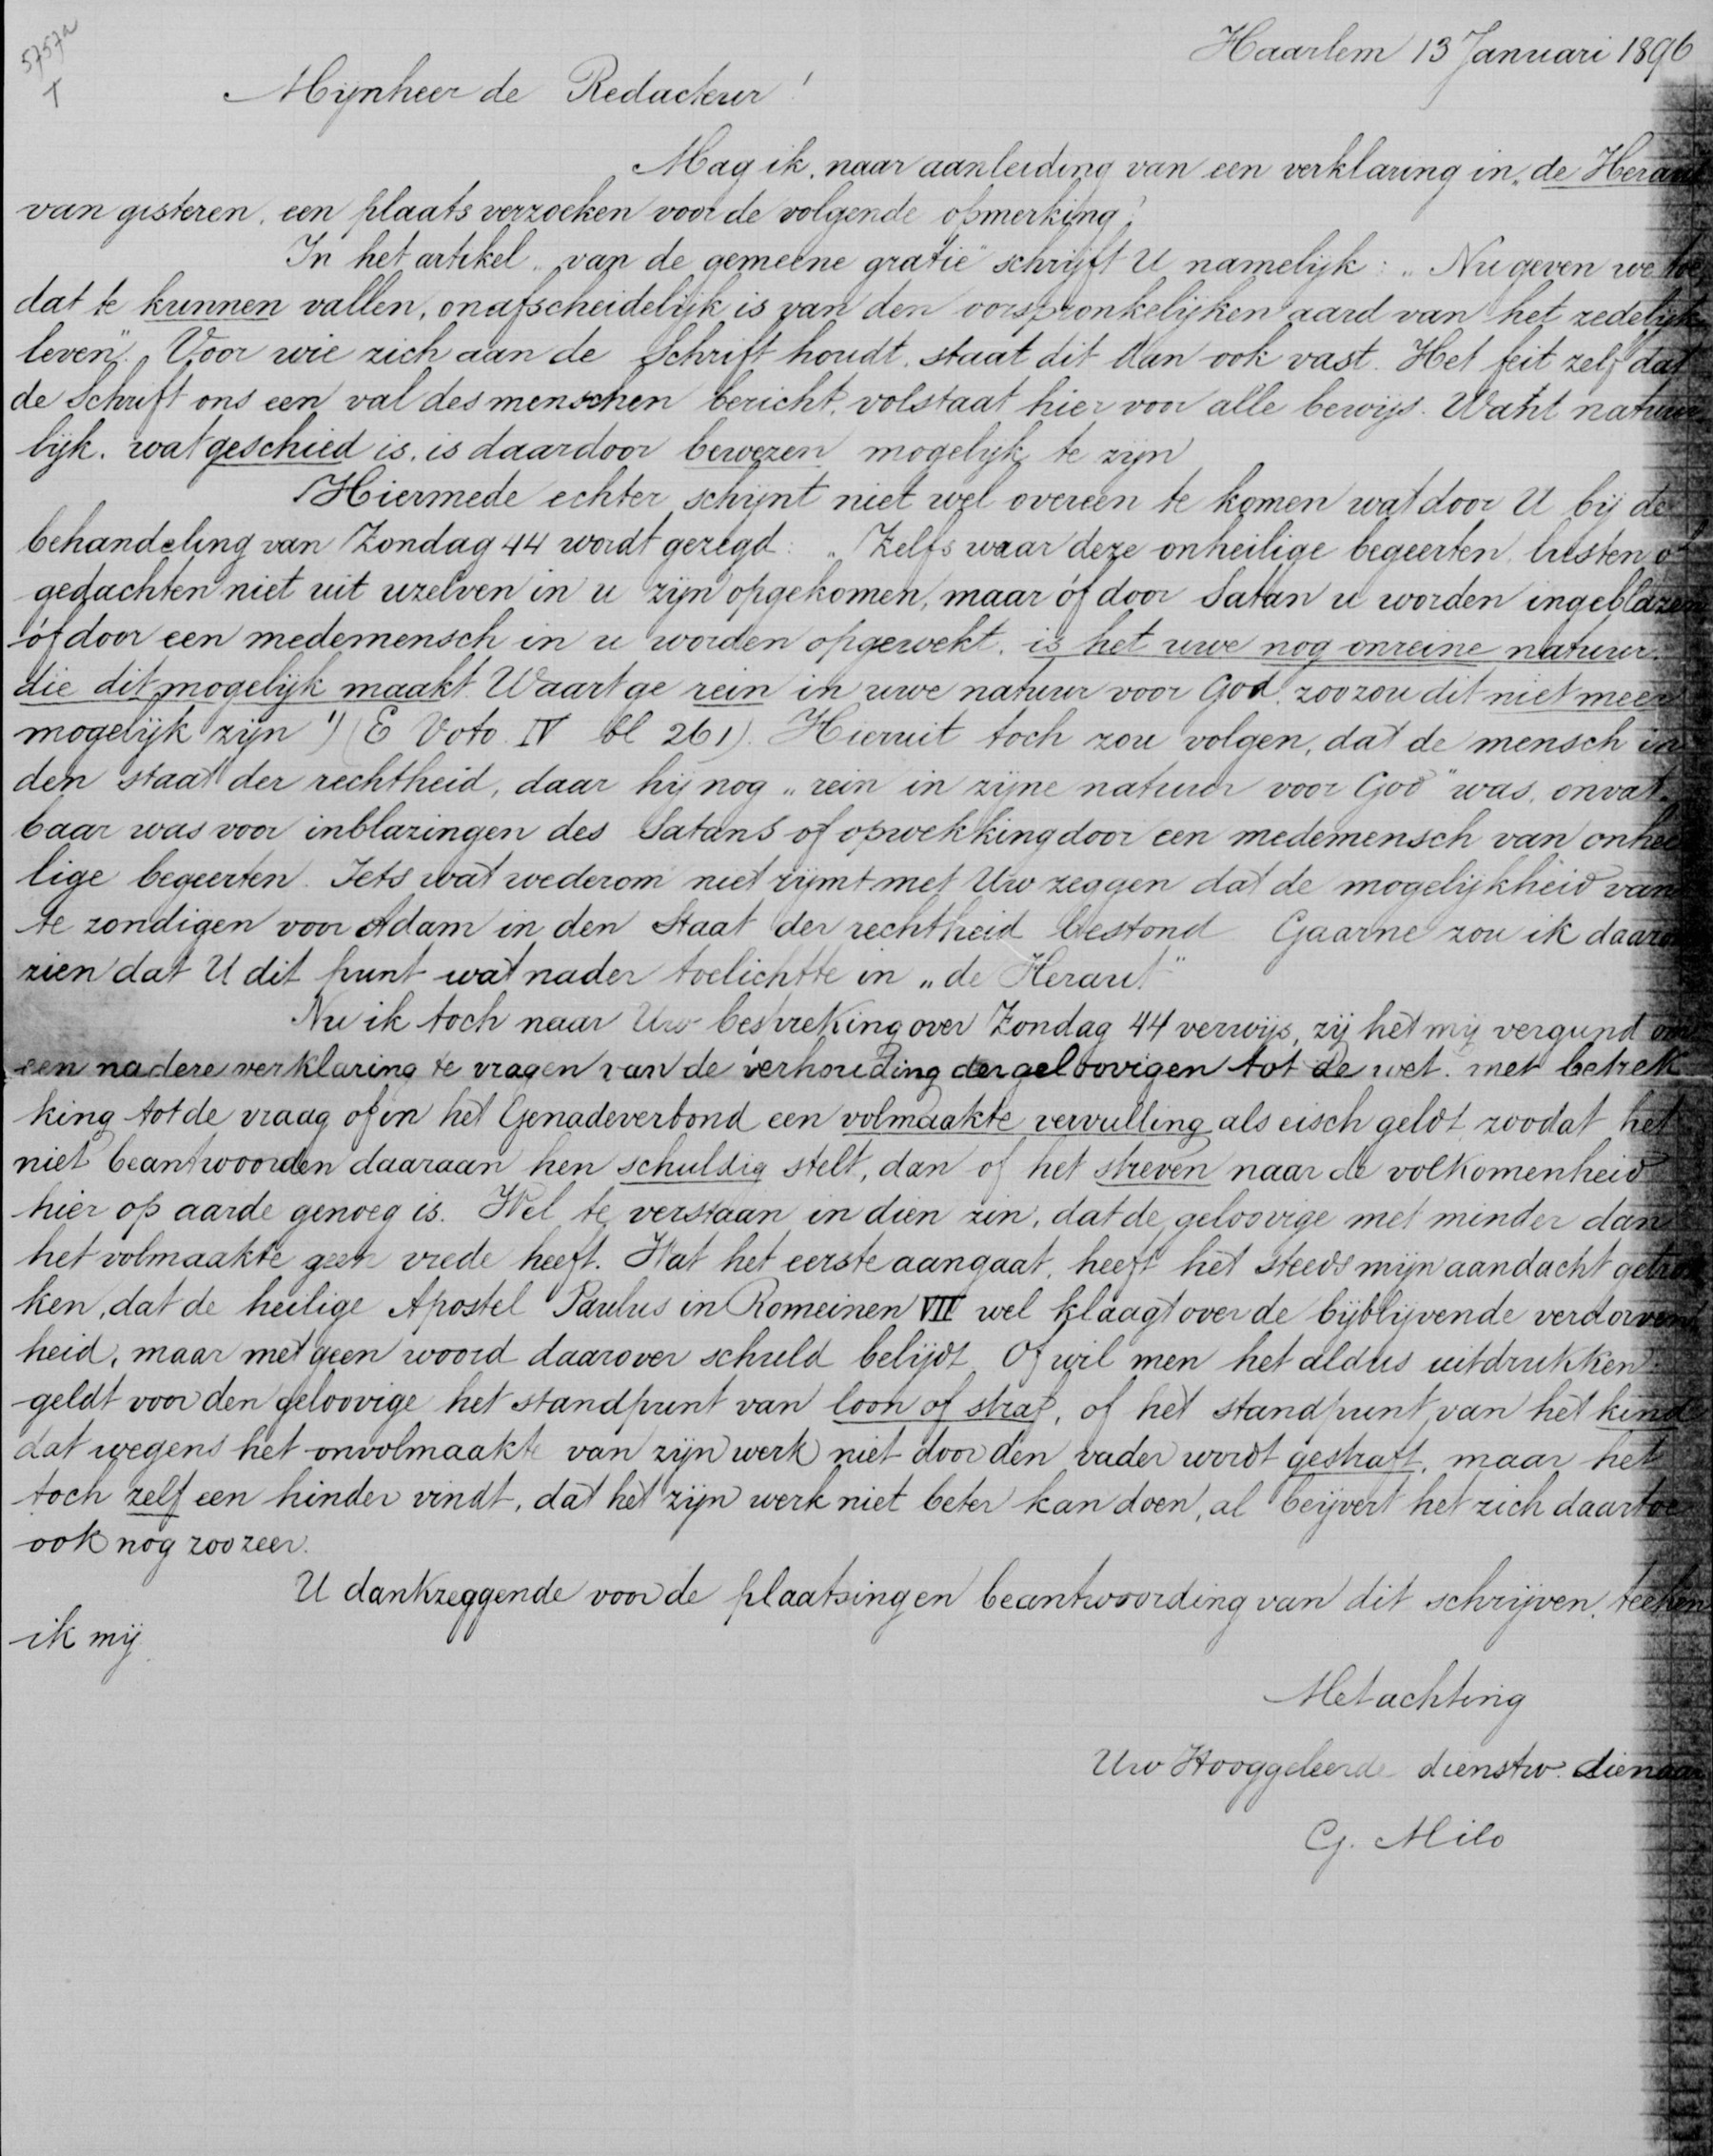 5757a
T
Haarlem 13 Januari 1896
Mijnheer de Redacteur!
Mag ik, naar aanleiding van een verklaring in „de Heraut
van gisteren, een plaats verzoeken voor de volgende opmerking?
In het artikel „van de gemeene gratie" schrijft U namelijk: „Nu geven we toe,
dat te kunnen vallen, onafscheidelijk is van den oorspronkelijken aard van het zedelijk
leven". Voor wie zich aan de Schrift houdt, staat dit dan ook vast. Het feit zelf dat
de Schrift ons een val des menschen bericht, volstaat hier voor alle bewijs. Want natuur
lijk, wat geschied is, is daardoor bewezen mogelijk te zijn
Hiermede echter schijnt niet wel overeen te komen wat door U bij de
behandeling van Zondag 44 wordt gezegd: „Zelfs waar deze onheilige begeerten, lusten of
gedachten niet uit uzelven in u zijn opgekomen, maar óf door Satan u worden ingeblazen
óf door een medemensch in u worden opgewekt, is het uwe nog onreine natuur,
die dit mogelijk maakt. Waart ge rein in uwe natuur voor God, zoo zou dit niet meer
mogelijk zijn") (E Voto IV bl 261). Hieruit toch zou volgen, dat de mensch in
den staat der rechtheid, daar hij nog „rein in zijne natuur voor God" was, onvat-
baar was voor inblazingen des Satans of opwekking door een medemensch van onhei
lige begeerten. Iets wat wederom niet rijmt met Uw zeggen dat de mogelijkheid van
te zondigen voor Adam in den Staat der rechtheid bestond Gaarne zou ik daarom
zien dat U dit punt wat nader toelichtte in „de Heraut"
Nu ik toch naar Uw bespreking over Zondag 44 verwijs, zij het mij vergund om
een nadere verklaring te vragen van de verhouding der geloovigen tot de wet, met betrek
king tot de vraag of in het Genadeverbond een volmaakte vervulling als eisch geldt, zoodat het
niet beantwoorden daaraan hen schuldig stelt, dan of het streven naar de volkomenheid
hier op aarde genoeg is. Wel te verstaan in dien zin, dat de geloovige met minder dan
het volmaakte geen vrede heeft. Wat het eerste aangaat, heeft het steeds mijn aandacht getrok
ken, dat de heilige Apostel Paulus in Romeinen VII wel klaagt over de bijblijvende verdorvend
heid, maar met geen woord daarover schuld belijdt. Of wil men het aldus uitdrukken:
geldt voor den geloovige het standpunt van loon of straf, of het standpunt van het kind
dat wegens het onvolmaakte van zijn werk niet door den vader wordt gestraft, maar het
toch zelf een hinder vindt, dat het zijn werk niet beter kan doen, al beijvert het zich daartoe
ook nog zoo zeer.
U dankzeggende voor de plaatsing en beantwoording van dit schrijven, teeken
ik mij
Met achting
Uw Hooggeleerde dienstw. dienaar
G. Milo